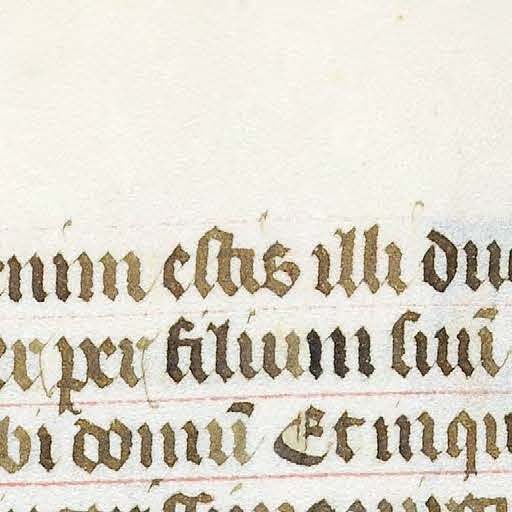 enim estis illi du
er per filium suū
bi domū Et inqu